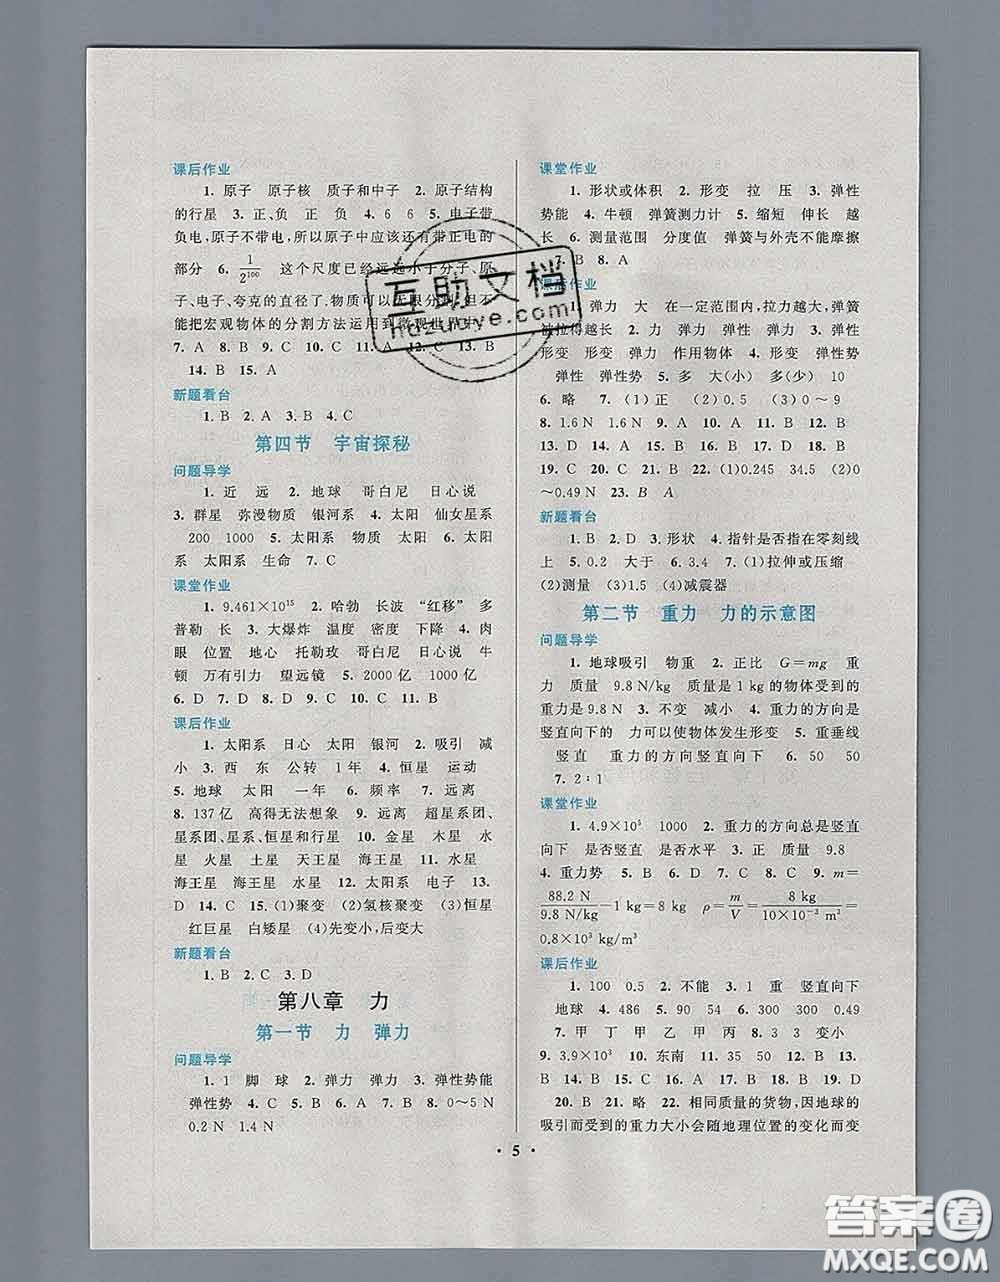 课后作业
1. 原子 原子核 质子和中子 2. 原子结构
的行星 3. 正、负 正 负 4. 6 6 5. 电子带
负电,原子不带电,所以原子中应该还有带正电的
部分 6. 1/2^100 这个尺度已经远远小于分子、原
子、电子、夸克的直径了,物质可以无限分割,但不
能把宏观物体的分割方法运用到微观世界中
7. A 8. A 9. B 10. B 11. A 12. C 13. B
14. B 15. A
新题看台
1. B 2. A 3. B 4. C
第四节 宇宙探秘
问题导学
1. 近 远 2. 地球 哥白尼 日心说
3. 群星 弥漫物质 银河系 4. 太阳 仙女星系
200 1000 5. 太阳系 物质 太阳 6. 太阳
系 太阳系 生命 7. C
课堂作业
1. 9.461×10^15 2. 哈勃 长波 “红移” 多
普勒 长 3. 大爆炸 温度 密度 下降 4. 肉
眼 位置 地心 托勒玫 哥白尼 日心说 牛
顿 万有引力 望远镜 5. 2000亿 1000亿
6. D 7. D 8. D 9. C 10. C 11. B
课后作业
1. 太阳系 日心 太阳 银河 2. 吸引 减
小 3. 西 东 公转 1年 4. 恒星 运动
5. 地球 太阳 一年 6. 频率 7. 远离
8. 137亿 高得无法想象 9. 远离 超星系团、
星系团、星系、恒星和行星 10. 金星 木星 水
星 火星 土星 天王星 海王星 11. 水星
海王星 海王星 水星 12. 太阳系 电子 13.
D 14. C 15. (1)聚变 (2)氢核聚变 (3)恒星
红巨星 白矮星 (4)先变小,后变大
新题看台
1. B 2. C 3. D
第八章 力
第一节 力 弹力
问题导学
1. 1 脚 球 2. 弹力 弹力 3. 弹性势能
弹性势 4. C 5. B 6. B 7. B 8. 0～5 N
0.2 N 1.4 N
课堂作业
1. 形状或体积 2. 形变 拉 压 3. 弹性
势能 4. 牛顿 弹簧测力计 5. 缩短 伸长 越
长 6. 测量范围 分度值 弹簧与外壳不能摩擦
7. B 8. A
课后作业
弹力 大 在一定范围内,拉力越大,弹簧
被拉得越长 2. 力 弹力 弹性 弹力 3. 弹性
形变 形变 弹力 作用物体 4. 形变 弹性势
弹性 弹性势 5. 多 大(小) 多(少) 10
6. 略 7. (1)正 (2)0.5 (3)0～9
8. 1.6 N 1.6 N 9. A 10. A 11. B 12. B
13. D 14. A 15. A 16. B 17. D 18. B
19. C 20. C 21. C 22. (1)0.245 34.5 (2)0
～0.49 N 23. B A
新题看台
1. B 2. D 3. 形状 4. 指针是否指在零刻线
上 5. 0.2 大于 6. 3.4 7. (1)拉伸或压缩
(2)测量 (3)1.5 (4)减震器
第二节 重力 力的示意图
问题导学
1. 地球吸引 物重 2. 正比 G=mg 重
力 质量 9.8 N/kg 质量是1 kg的物体受到的
重力是9.8 N 3. 不变 减小 4. 重力的方向是
竖直向下的 力可以使物体发生形变 5. 重垂线
竖直 重力的方向竖直向下 6. 50 50
7. 2∶1
课堂作业
1. 4.9×10^5 1000 2. 重力的方向总是竖直
向下 是否竖直 是否水平 3. 正 质量 9.8
4. 重力势 5. B 6. D 7. B 8. C 9. m=
88.2 N/9.8 N/kg−1 kg=8 kg ρ=m/V=8 kg/10×10^−3 m^3=
0.8×10^3 kg/m^3
课后作业
1. 100 0.5 2. 不能 3. 重 竖直向下
地球 4. 486 5. 90 54 6. 300 300 0.49
7. 甲 丁 甲 乙 甲 丙 8. 3 3 变小
9. 3.9×10^3 10. 东南 11. 35 50 12. B 13.
B 14. A 15. D 16. B 17. B 18. B 19. D
20. B 21. 略 22. 相同质量的货物,因地球的
吸引而受到的重力大小会随地理位置的变化而变
• 5 •
互助文档
hdzuoye.com
答案圈
MXQE.COM